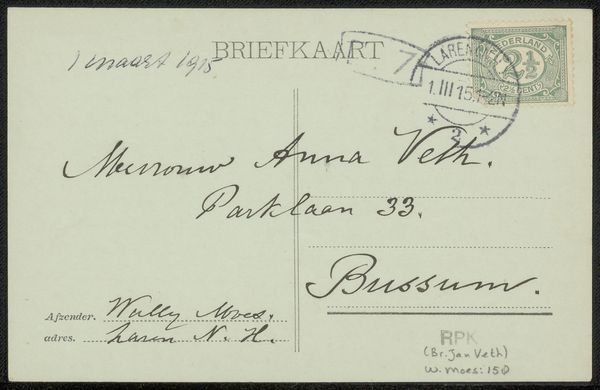 1 maart 1915
BRIEFKAART
7
LAREN
1.III 15.
2N
2
NEDERLAND
2½
(2½ CENT)
Mevrouw Anna Veth.
Parklaan 33.
Bussum.
Afzender. Wally Moes.
adres. Laren N. H.
RPK
(Br. Jan Veth)
W. Moes: 150